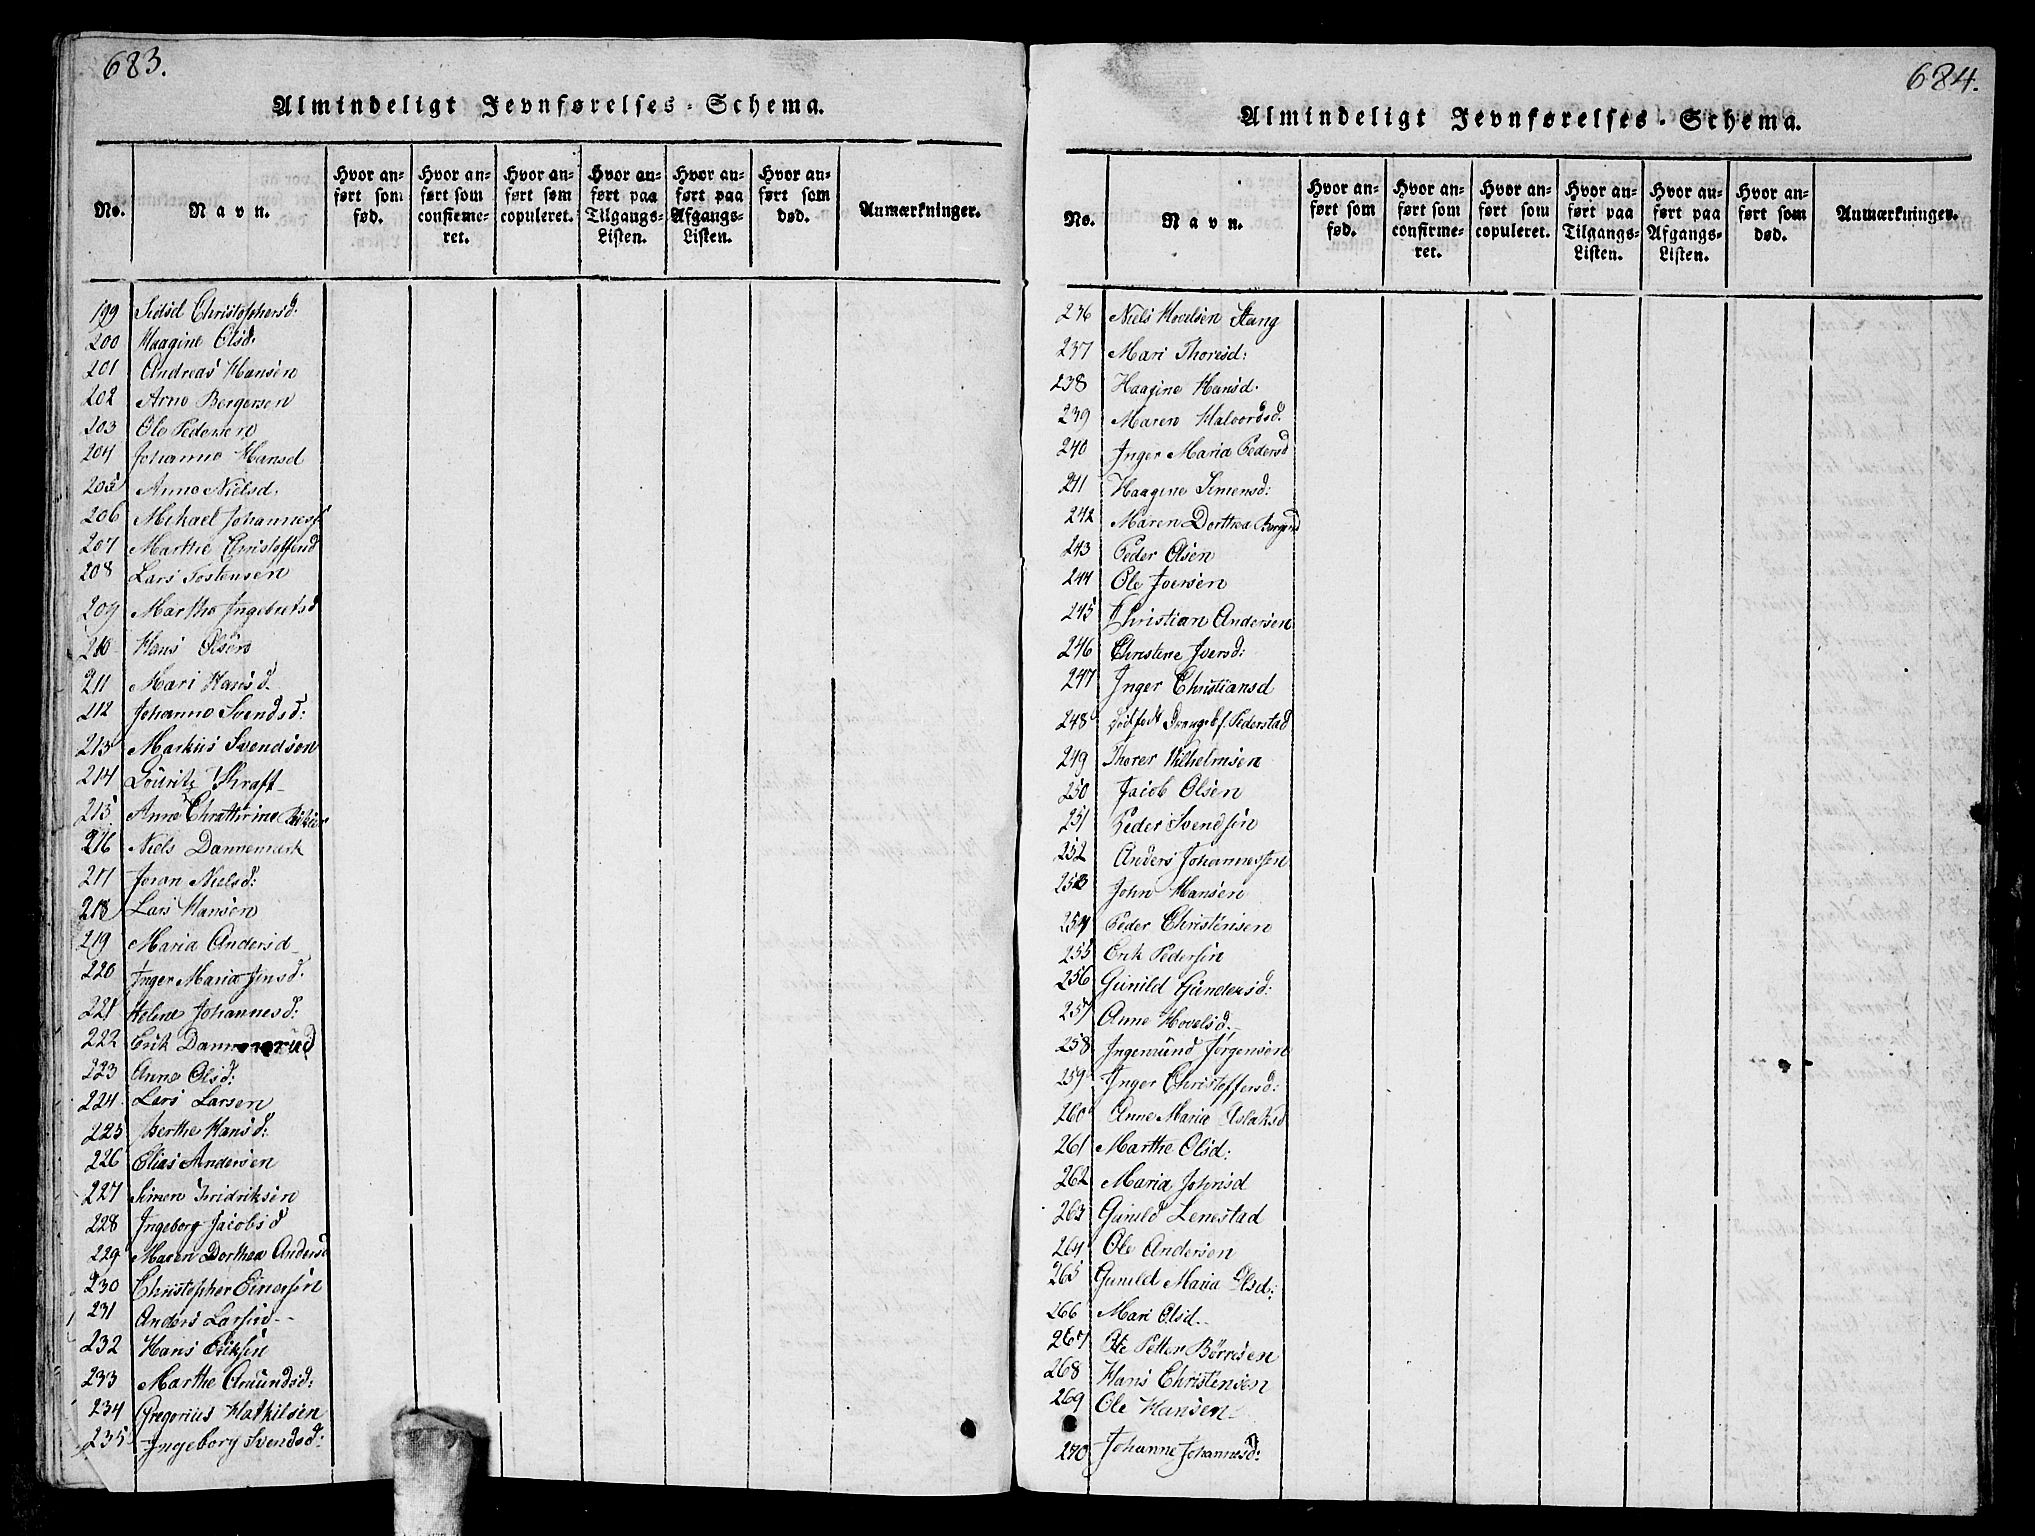 683.
Almindeligt Jevnførelses-Schema.
No.
Navn.
Hvor an-
ført som
fød.
Hvor an-
ført som
confirme-
ret.
Hvor an-
ført som
copuleret.
Hvor an-
ført paa
Tilgangs-
Listen.
Hvor an-
ført paa
Afgangs-
Listen.
Hvor an-
ført som
død.
Anmærkninger.
199 Sidsel Christophersd.
200 Haagine Olsd.
201 Andreas Hansen
202 Arne Bergersen
203 Ole Pedersen
204 Johanne Hansd
205 Anne Nielsd.
206 Mikael Johanness
207 Marthe Christoffersd
208 Lars Tostensen
209 Marthe Ingebretsd
210 Hans Olsen
211 Mari Hansd.
212 Johanne Svendsd:
213 Markus Svendsen
214 Louritz Kraft
215 Anne Chrathrine
216 Niels Dannemark
217 Joran Nielsd:
218 Lars Hansen
219 Maria Andersd
220 Inger Maria Jensd.
221 Helene Johannesd:
222 Erik Dannerud
223 Anne Olsd:
224 Lars Larsen
225 Berthe Hansd:
226 Elias Andersen
227 Simen Fridriksen
228 Ingeborg Jacobsd
229 Maren Dorthea Andersd
230 Christopher Einersen
231 Anders Larsen
232 Hans Eriksen
233 Marthe Amundsd:
234 Gregorius Halkilsen
235 Ingeborg Svendsd:
684.
Almindeligt Jevnførelses-Schema.
No.
Navn.
Hvor an-
ført som
fød.
Hvor an-
ført som
confirme-
ret.
Hvor an-
ført som
copuleret.
Hvor an-
ført paa
Tilgangs-
Listen.
Hvor an-
ført paa
Afgangs-
Listen.
Hvor an-
ført som
død.
Anmærkninger.
236 Niels Hovelsen Stang
237 Mari Thoresd:
238 Haagine Hansd.
239 Maren Halvorsd.
240 Inger Maria Pedersd
241 Haagine Simensd:
242 Maren Dorthea Bergersd
243 Peder Olsen
244 Ole Joersen
245 Christian Andersen
246 Christine Iversd:
247 Inger Christiansd
248 Dødfødt Drengeb. f. Pederstad
249 Thorer Vilhelmsen
250 Jacob Olsen
251 Peder Svendsen
252 Anders Johannessen
253 John Hansen
254 Peder Christensen
255 Erik Pedersen
256 Gunild Gundersd:
257 Anne Hovelsd.
258 Ingemund Jørgensen
259 Inger Christoffersd:
260 Anne Maria Aslaksd
261 Marthe Olsd:
262 Maria Johnsd
263 Gunild Lenestad
264 Ole Andersen
265 Gunild Maria Olsd:
266 Mari Olsd.
267 Ole Petter Børresen
268 Hans Christensen
269 Ole Hansen
270 Johanne Johannesd: